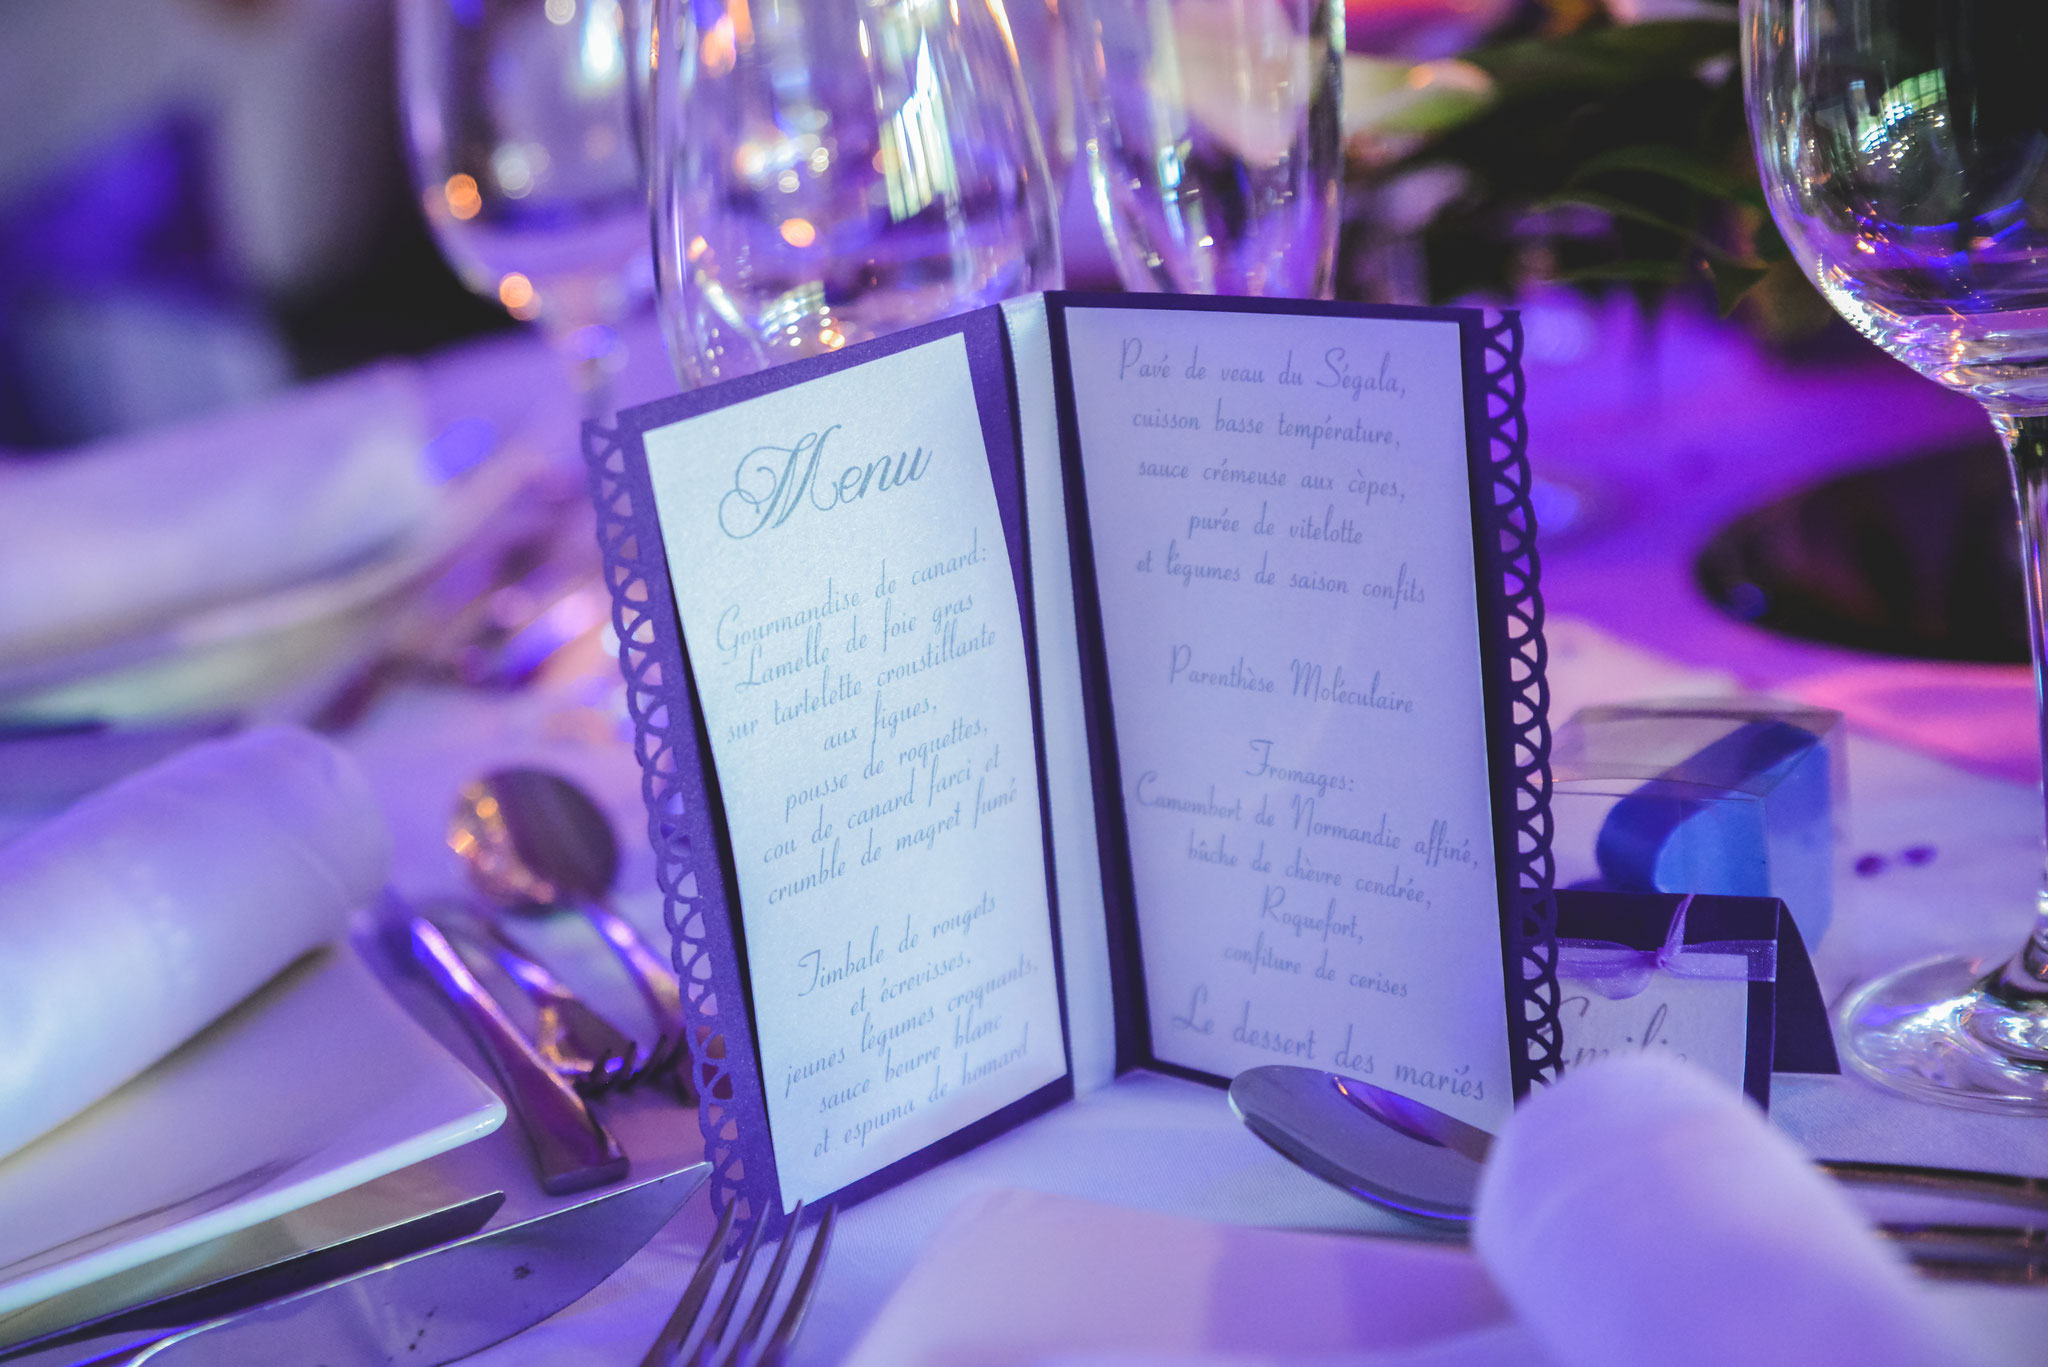 Menu
Gourmandise de canard:
Lamelle de foie gras
sur tartelette croustillante
aux figues,
pousse de roquettes,
cou de canard farci et
crumble de magret fumé
Timbale de rougets
et écrevisses,
jeunes légumes croquants,
sauce beurre blanc
et espuma de homard
Pavé de veau du Ségala,
cuisson basse température,
sauce crémeuse aux cèpes,
purée de vitelotte
et légumes de saison confits
Parenthèse Moléculaire
Fromages:
Camembert de Normandie affiné,
bûche de chèvre cendrée,
Roquefort,
confiture de cerises
Le dessert des mariés